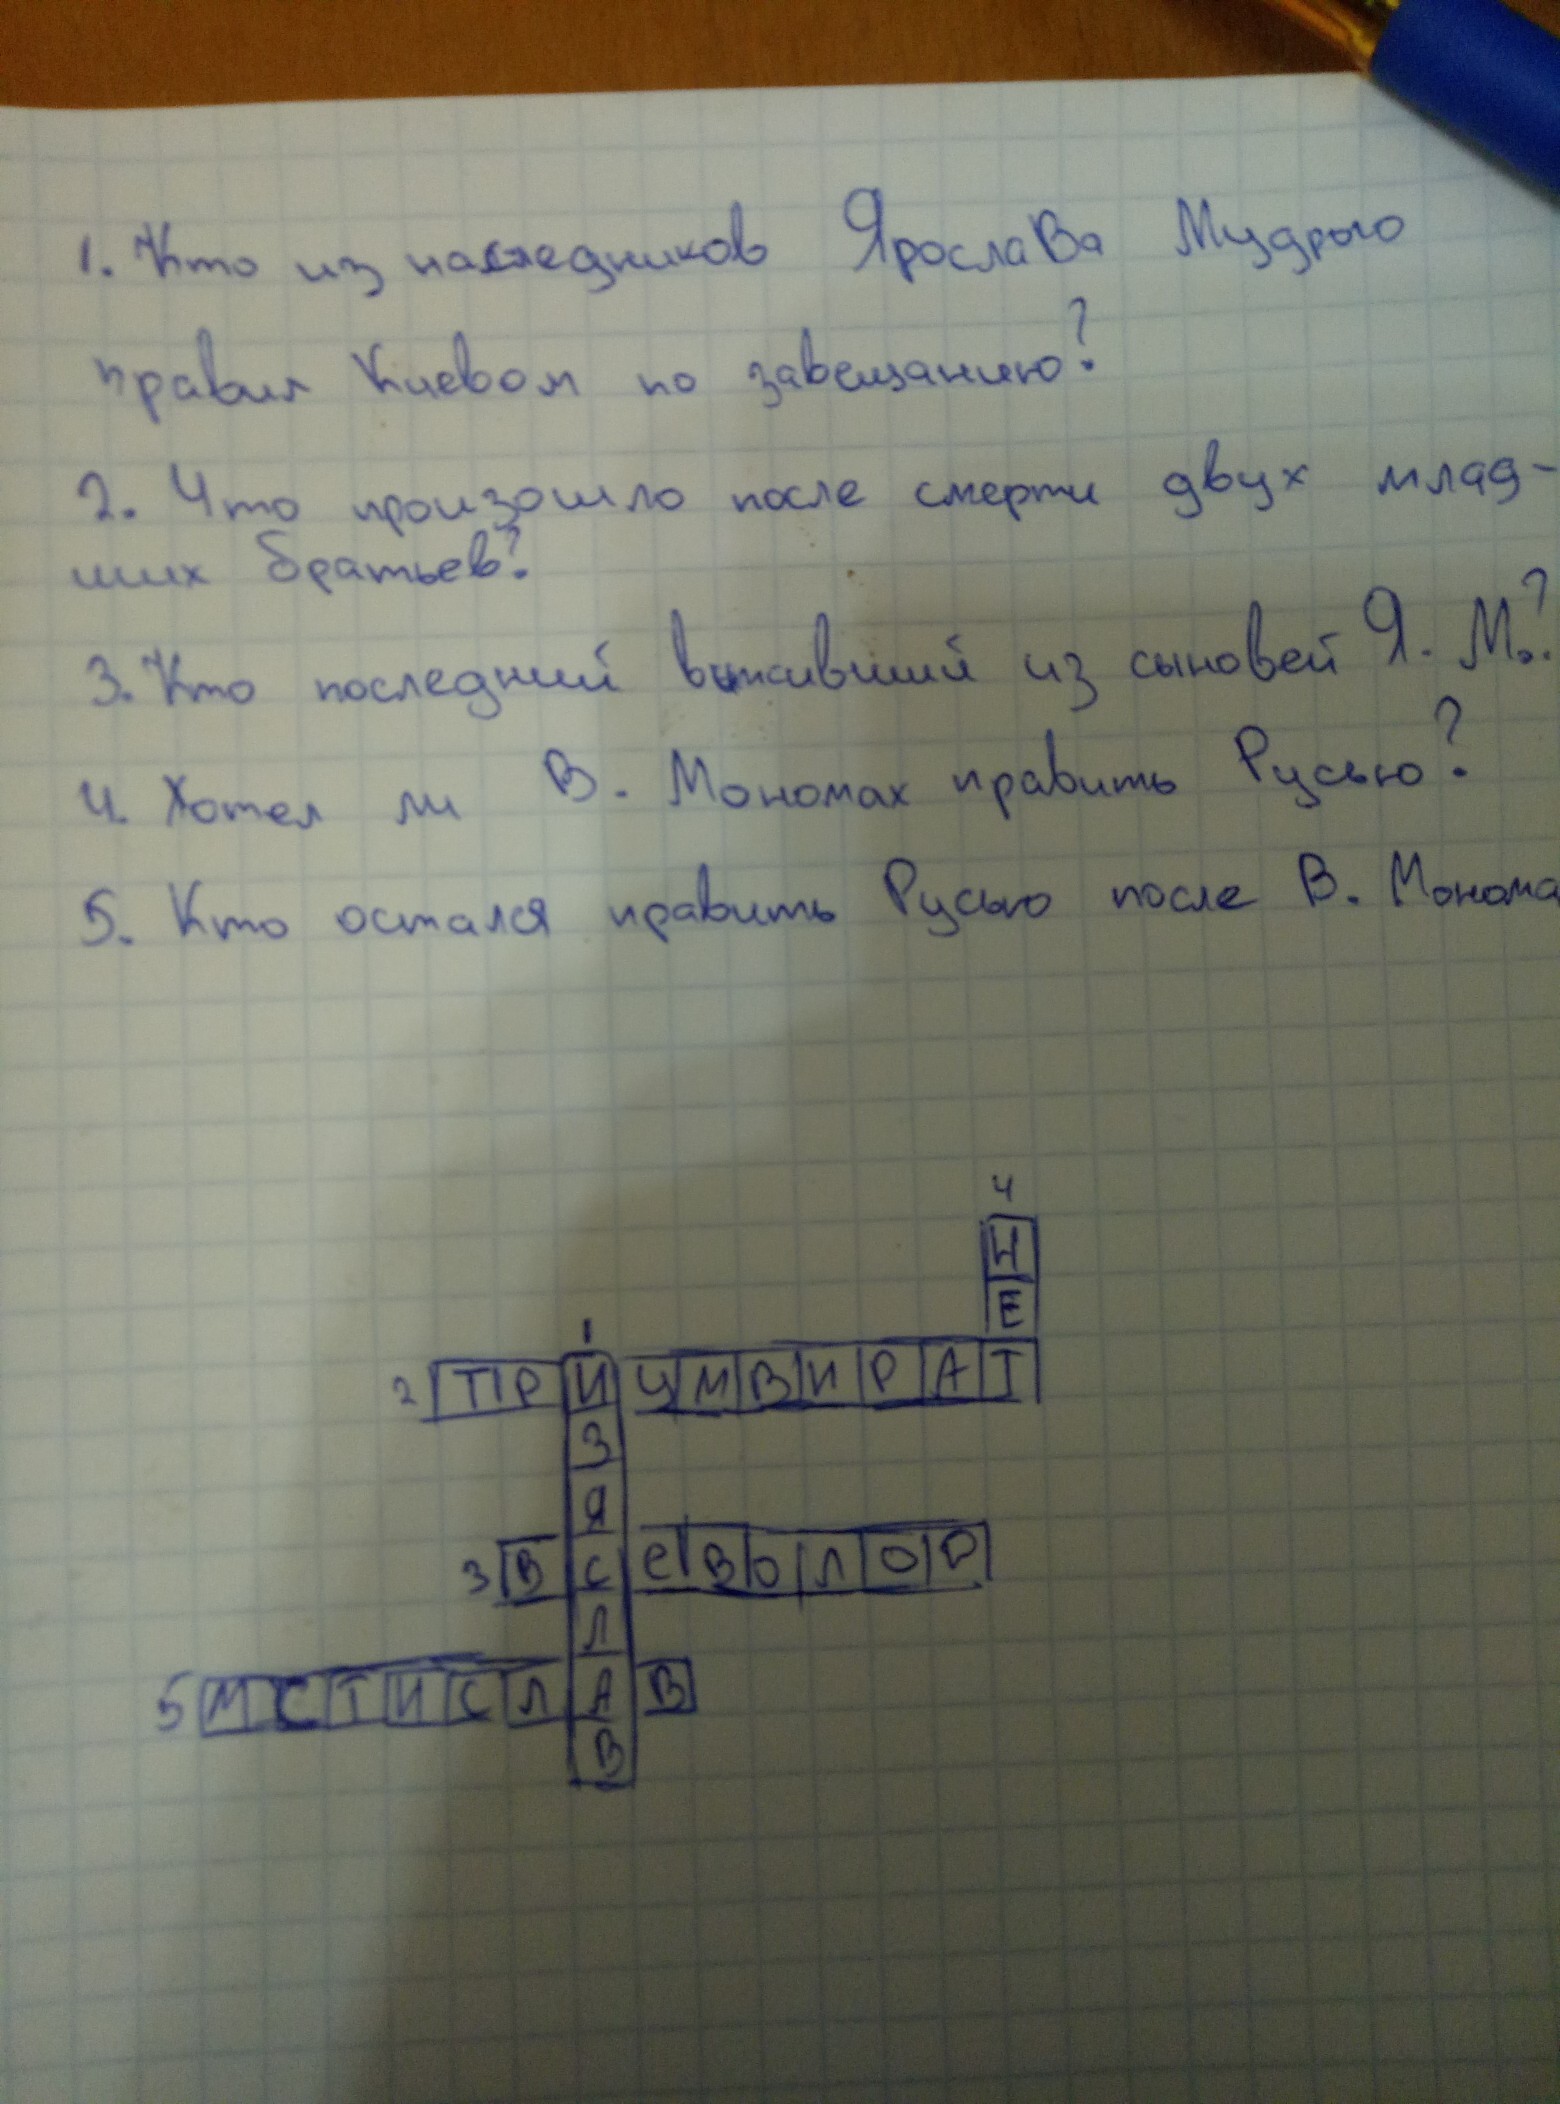 1. Кто из наследников Ярослава Мудрого
правил Киевом по завещанию?
2. Что произошло после смерти двух млад-
ших братьев?
3. Кто последний выживший из сыновей Я. М.?
4. Хотел ли В. Мономах править Русью?
5. Кто остался править Русью после В. Монома
4
Н
Е
1
2 ТРИУМВИРАТ
З
Я
3 ВСЕВОЛОД
Л
5 МСТИСЛАВ
В